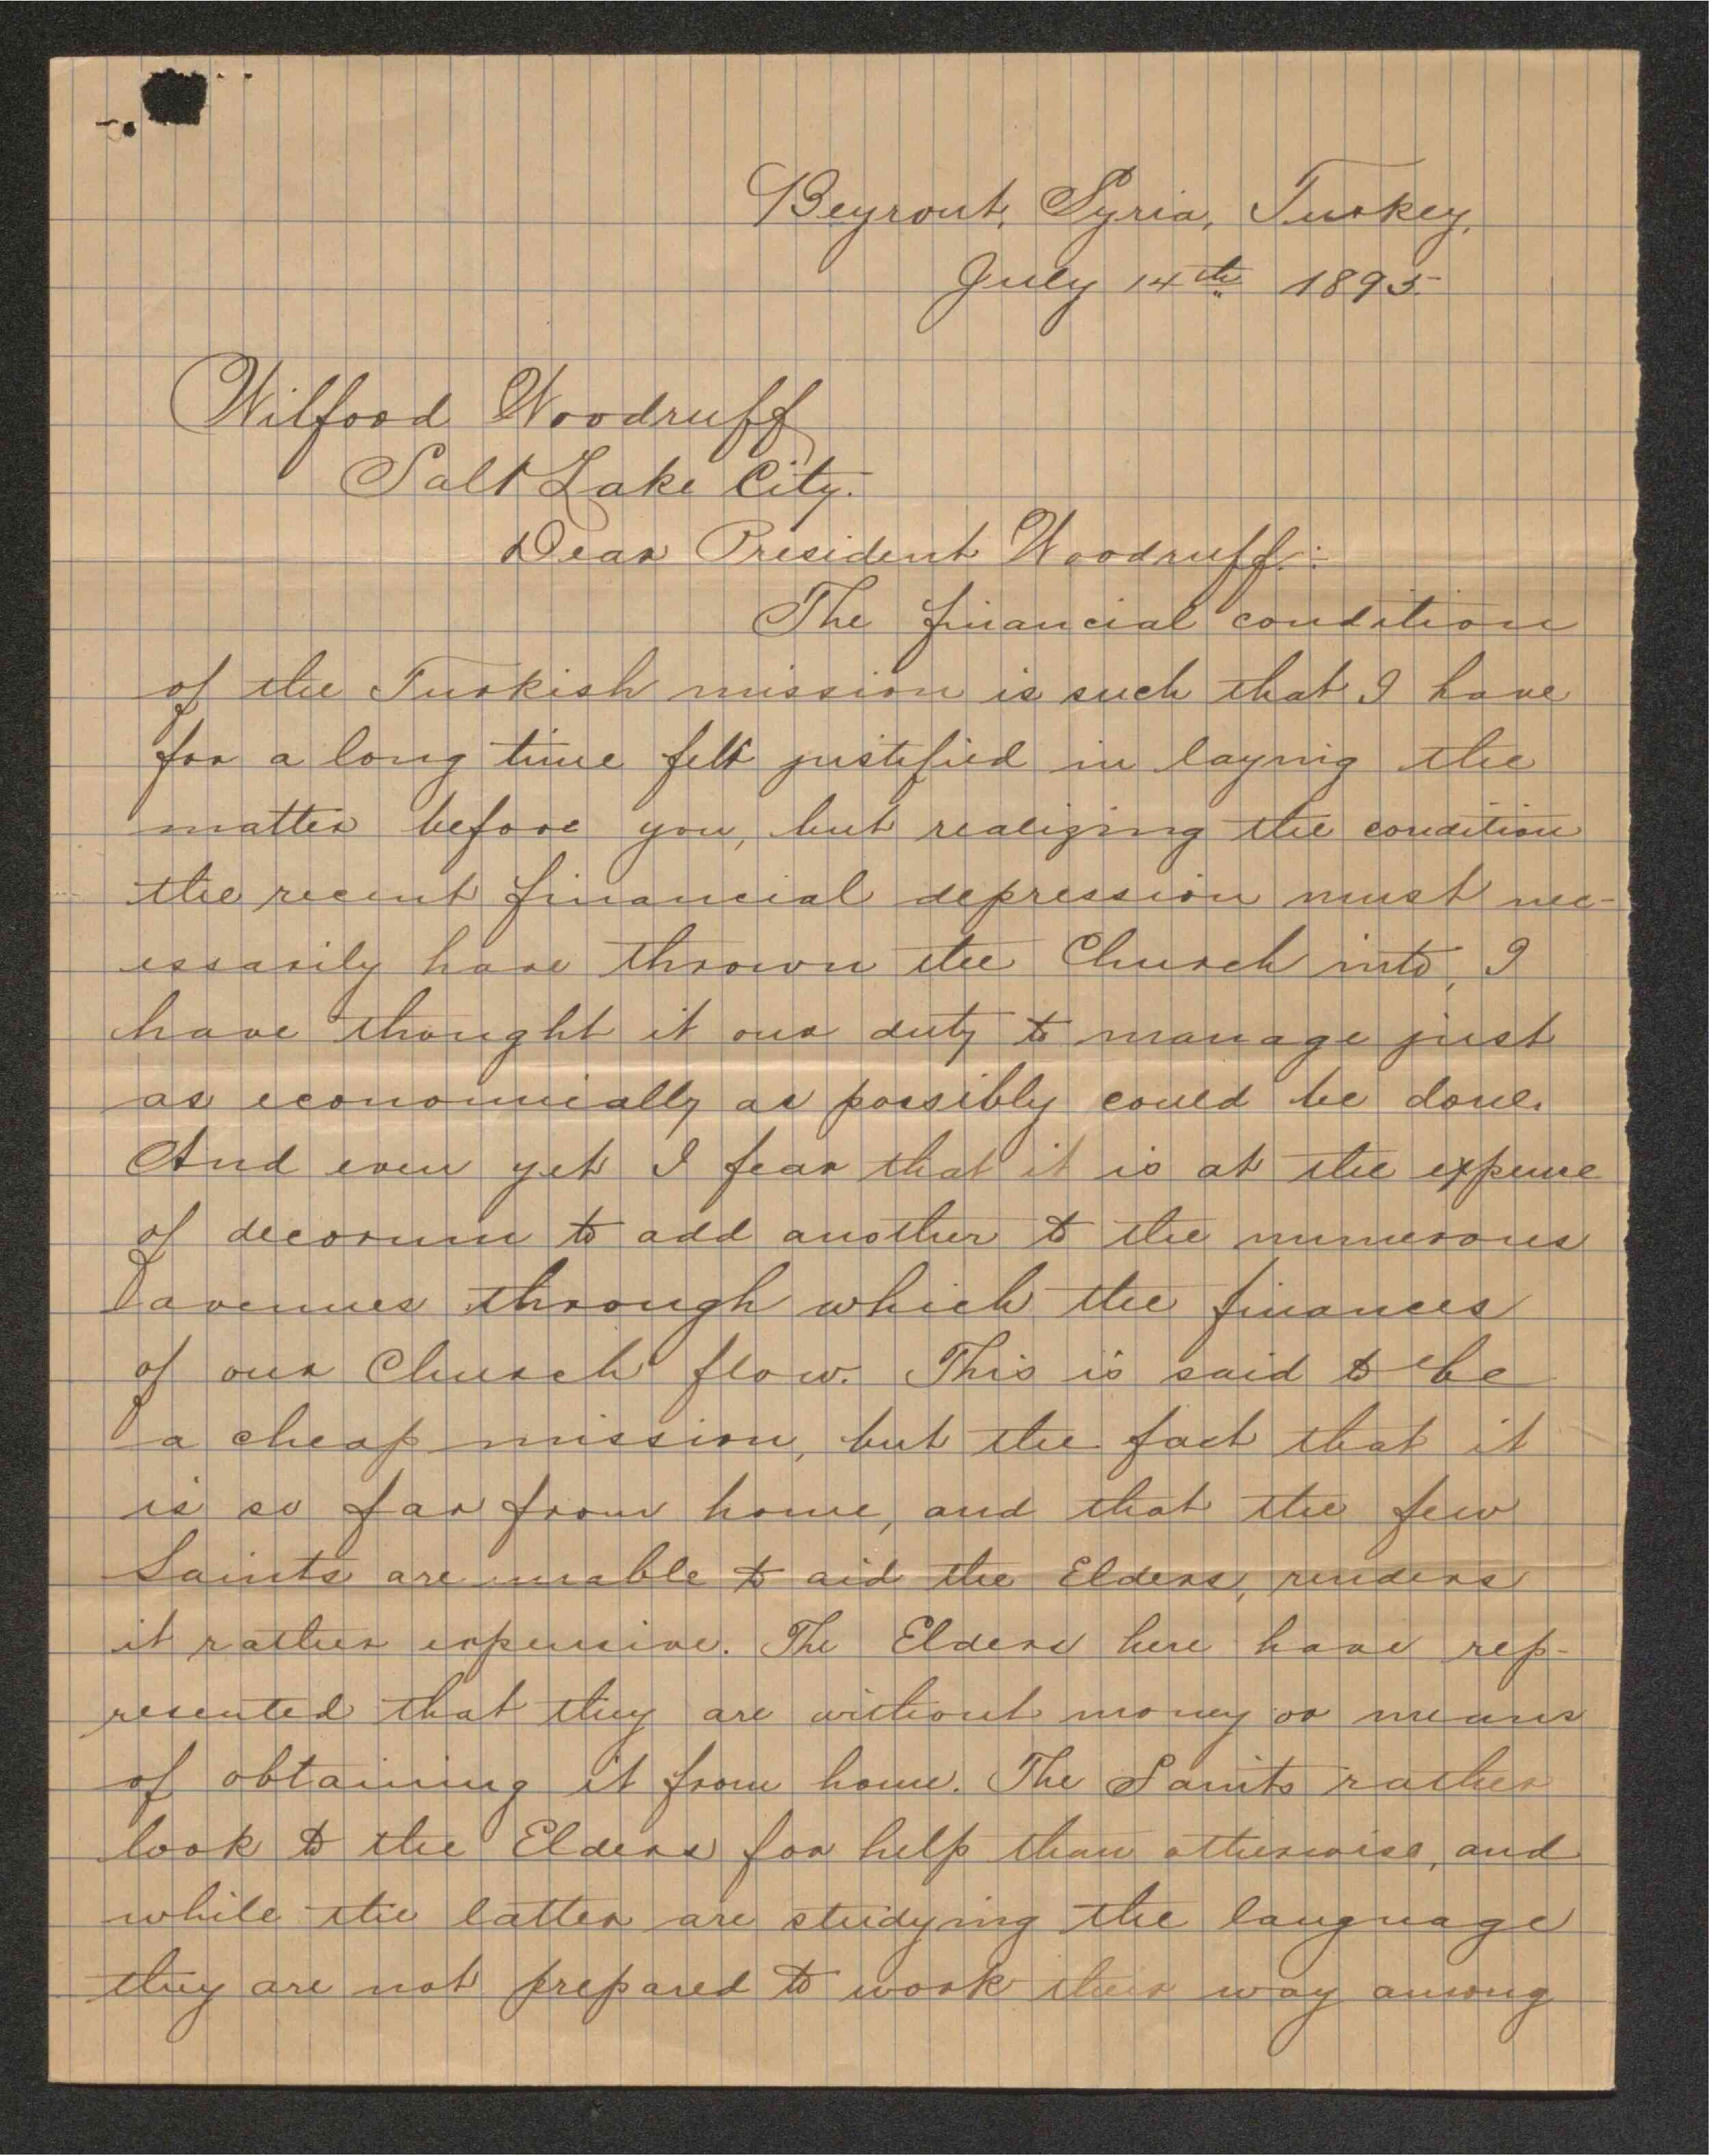 Beyrout, Syria, Turkey,
July 14th 1895.
Wilford Woodruff
Salt Lake City.
Dear President Woodruff:
The financial condition
of the Turkish mission is such that I have
for a long time felt justified in laying the
matter before you, but realizing the condition
the recent financial depression must nec-
essarily have thrown the Church into, I
have thought it our duty to manage just
as economically as possibly could be done.
And even yet I fear that it is at the expense
of decorum to add another to the numerous
avenues through which the finances
of our Church flow. This is said to be
a cheap mission, but the fact that it
is so far from home, and that the few
Saints are unable to aid the Elders, renders
it rather expensive. The Elders here have rep-
resented that they are without money or means
of obtaining it from home. The Saints rather
look to the Elders for help than otherwise, and
while the latter are studying the language
they are not prepared to work their way among